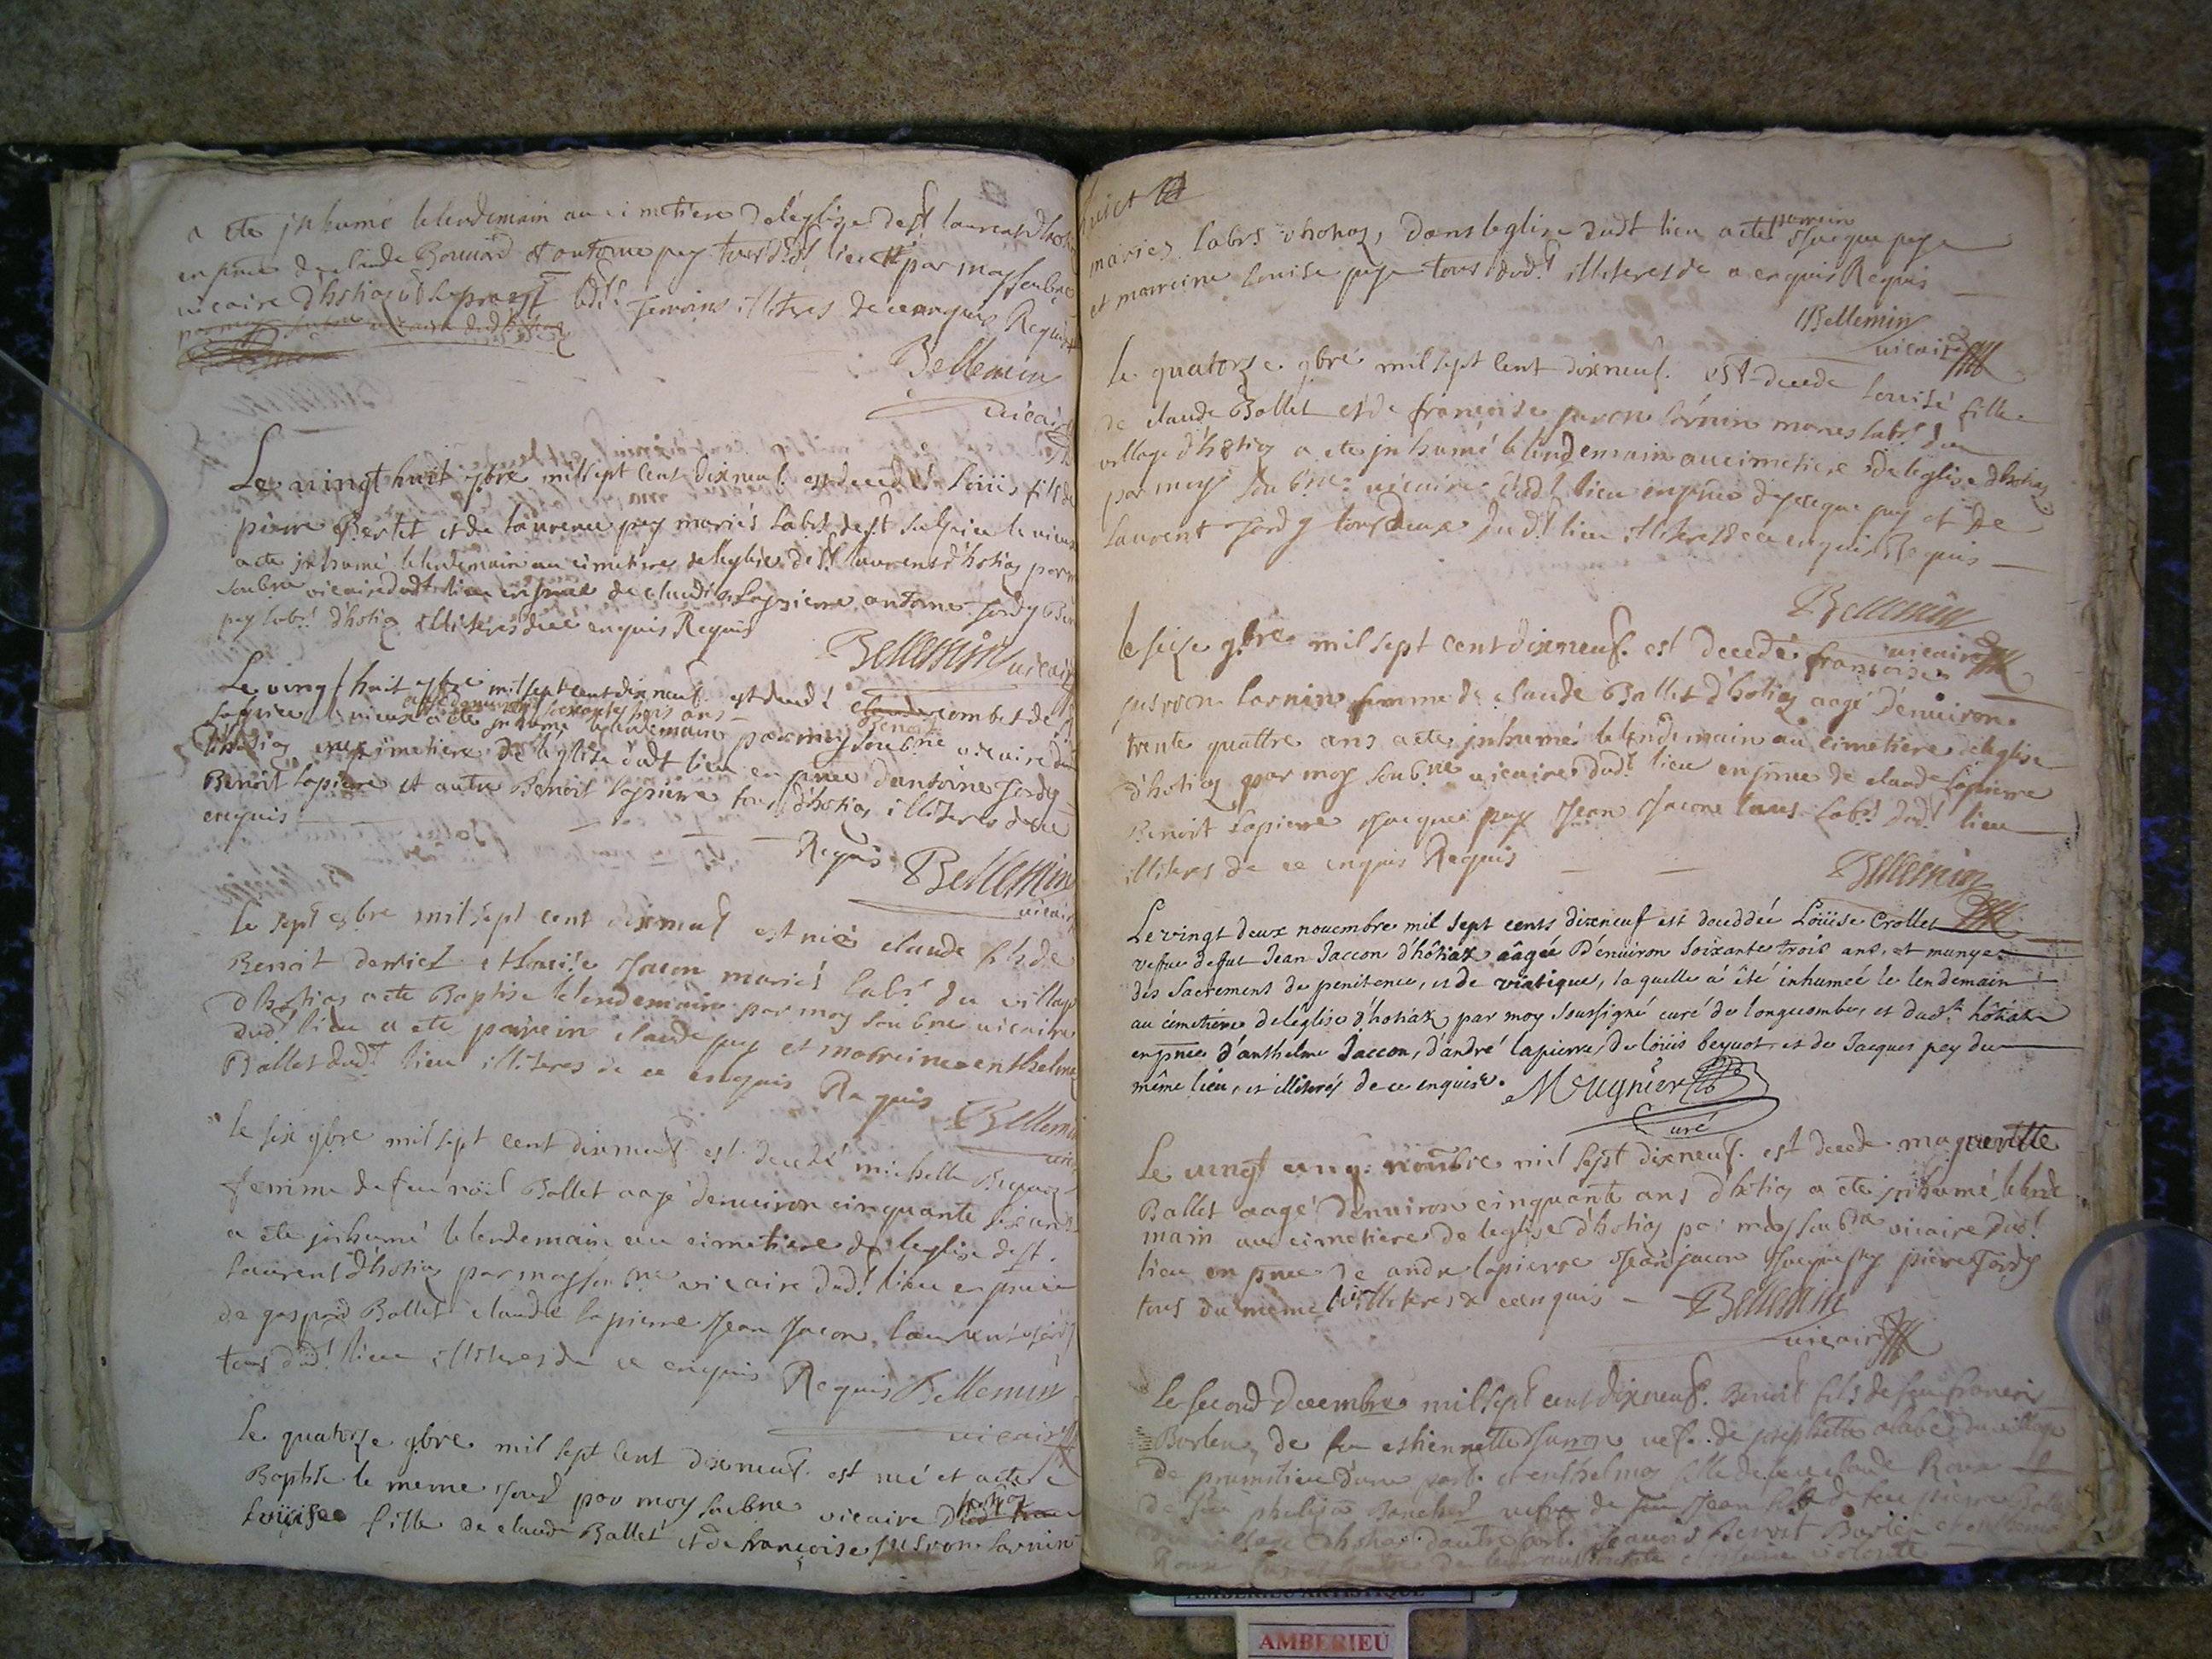 a ete jnhumé le lendemain au cimetiere de léglize de st laurens dhotiaz
en pnce de claude Bouuard et antoine pey tous dudt lieu par moy soubne
uicaire dhotiaz temoins illiteres de ce enquis Requis
Bellemin
uicaire
Le uingt huit 7bre mil sept cent dixneuf est decedé Loüis fils de
pierre Bertet et de laurence pey mariés labrs de st sulpice le uieux
a ete jnhumé le lendemain au cimetiere de leglise de st laurens d'hotiaz par
soubne uicaire dudt lieu en pnce de claude Lapierre antoine Jordy Ben
pey labrs d'hotiaz illiteres de ce enquis Requis
Bellemin uicaire
Le uingt huit 7bre mil sept cent dixneuf est decedé combet de st
Benoit
sulpice le uieux a ete jnhumé le lendemain par moy soubne uicaire du
aagé denuiron soixante trois ans
dhotiaz au cimetiere de leglise dudt lieu en pnce dantoine Jordy
Benoit lapierre et autre Benoit lapierre tous d'hotiaz illiteres de ce
enquis
Requis Bellemin
uicaire
le sept 8bre mil sept cent dixneuf est nié claude fils de
Benoit et Louise Jacon mariés labrs du village
dhotiaz a ete Baptisé le lendemain par moy soubne uicaire
dudt lieu a ete parrein claude pey et marreine enthelme
Ballet dudt lieu illiteres de ce enquis Requis
Bellemin
uicaire
le six 9bre mil sept cent dixneuf est decedé michelle Beguoz
femme de feu noël Ballet aagé denuiron cinquante six ans
a ete jnhumé le lendemain au cimetiere de leglise de st
laurent d'hotiaz par moy soubne vicaire dudt lieu en pnce
de gaspard Ballet claude lapierre Jean Jacon laurent Jordy
tous dudt lieu illiteres de ce enquis Requis Bellemin
uicaire
Le quatorze 9bre mil sept cent dixneuf est nié et a ete
Baptisé le meme jour par moy soubne uicaire d'hotiaz
Loüise fille de claude Ballet et de françoise jusson sarnin
mariés labrs dhotiaz, dans leglise dudt lieu a ete parrein Jacque pey
et marreine Louise pey tous dudt illiteres de ce enquis Requis
Bellemin
uicaire
le quatorze 9bre mil sept cent dixneuf est decede Louise fille
de claude Ballet et de francoise jusson sarnin mariés labrs du
village d'hotiaz a ete jnhumé le lendemain au cimetiere de leglise dhotiaz
par moy soubne uicaire dudt lieu en pnce de Jacque pey et de
Laurent Jordy tous deux dudt lieu illiteres de ce enquis Requis
Bellemin
uicaire
le seize 9bre mil sept cent dixneuf est decedé francoise
jusson sarnin femme de claude Ballet d'hotiaz aagé d'enuiron
trente quattre ans a ete jnhumé le lendemain au cimetiere de leglise
d'hotiaz par moy soubne uicaire dudt lieu en pnce de claude Lapierre
Benoit Lapierre Jacque pey Jean Jacon tous labrs dudt lieu
illiteres de ce enquis Requis
Bellemin
Le vingt deux nouembre mil sept cents dixneuf est deceddée Loüise Crollet
vefue deffut Jean Jaccon d'hôtiax aâgée D'enuiron soixante trois ans, et munye
des Sacrement de penitence, et de viatique, laquelle à été inhumée le lendemain
au cimetiere de léglise d'hotiax par moy soussigné curé de longecombe, et dudt hôtiax
en pnce d'anthelme Jaccon, d'andré lapierre, de loüis beguot et de Jacques pey du
même lieu, et illiterés de ce enquise. Mugnier
Curé
Le uingt cinq nouembre mil sept dixneuf est decede marguerite
Ballet aagé denuiron cinquante ans d'hotiaz a ete jnhumé le lende
main au cimetiere de leglise d'hotiaz par moy soubne vicaire dudt
lieu en pnce de andre lapierre Jean jacon Jacque pey pierre Jordy
tous du même lieu illiteres de ce enquis Bellemin
uicaire
Le second Decembre mil sept cent dixneuf Benoit fils de feu francois
Burlen, de fu estiennette du village
de d'une part et enthelme fille de feu claude Roux
de feu vefue de feu Jean fils de feu pierre Ballet
du village dhotiaz d'autre part Benoit Burlen et enthelme
Roux
AMBERIEU